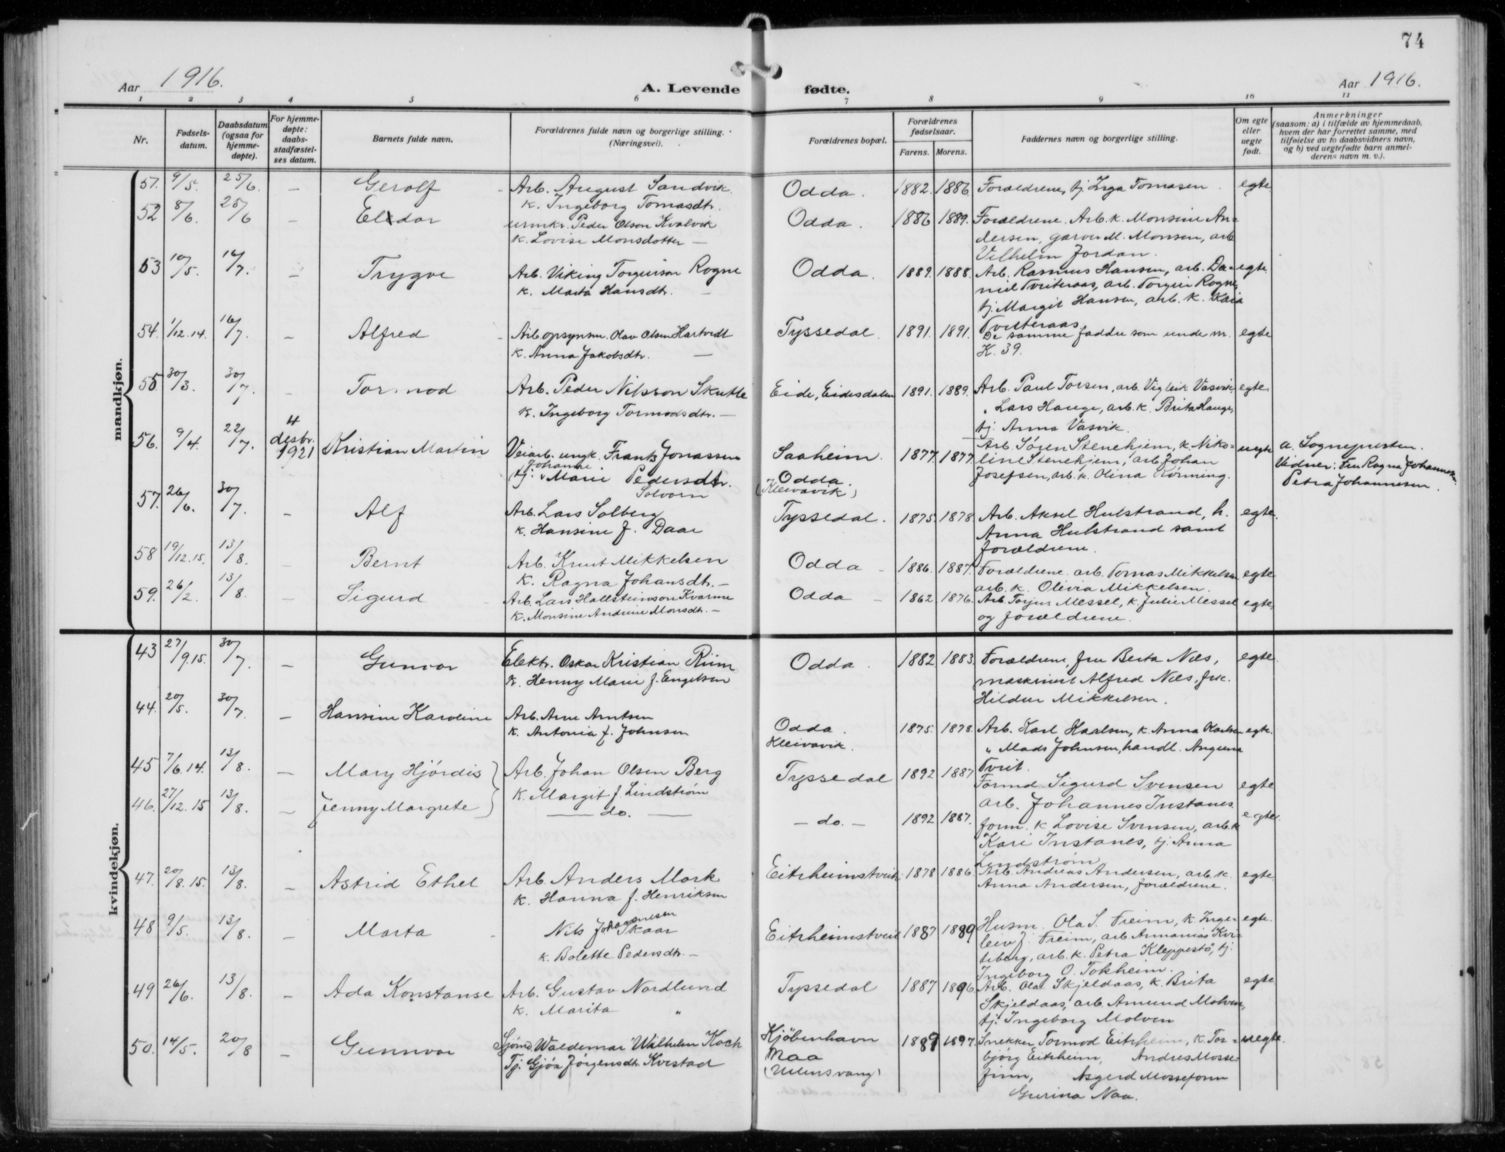 74
Aar 1916.
A. Levende fødte.
Aar 1916.
1 2 3 4 5 6 7 8 9 10 11
Nr.
Fødsels-
datum.
Daabsdatum
(ogsaa for
hjemme-
døpte).
For hjemme-
døpte:
daabs-
stadfæstel-
ses datum.
Barnets fulde navn.
Forældrenes fulde navn og borgerlige stilling.
(Næringsvei).
Forældrenes bopæl.
Forældrenes
fødselsaar.
Farens. Morens.
Faddernes navn og borgerlige stilling.
Om egte
eller
uegte
født.
Anmerkninger
(saasom: a) i tilfælde av hjemmedaab,
hvem der har forrettet samme, med
tilføielse av to daabsvidners navn,
og b) ved uegtefødte barn anmel-
derens navn m. v.).
mandkjøn.
51. 9/5. 25/6. – Gerolf Arb. August Sandvik Odda. 1882. 1886 Forældrene, tj Inga Tomasen. egte
k. Ingeborg Tomasdtr.
52 8/6. 25/6 – Eldor urmkr. Peder Olson Kvalvik Odda. 1886 1889. Forældrene. Arb. k. Monsine An-
k. Lovise Monsdotter – dersen, garver M. Monsen, arb
Vilhelm Jordan.
53 10/5. 14/7. – Trygve Arb. Viking Torgeirson Rogne Odda. 1889. 1888. Arb. Rasmus Hansen, arb. Da- egte
k. Marta Hansdtr. – niel Tveiteraas, arb. Torgeir Rogne,
tj. Margit Hansen, arb. k. Kaia
Tveiteraas
54. 1/12.14. 16/7. – Alfred Arb. opsynsm Olav Olsen Hartvedt Tyssedal. 1891. 1891. De samme faddre som under m. egte
k. Anna Jakobsdtr. – K. 39.
55 30/3. 30/7. – Tormod Arb. Peder Nilsson Skutle Eide, Eidesdalen 1891. 1889. Arb. Paul Torsen, arb. Vigleik Vasvik egte
k. Ingeborg Tormodsdtr. – " Lars Hauge, arb. k. Brita Hauge,
tj. Anna Vasvik.
56. 9/4. 22/7. 4 desbr. 1921 Kristian Martin Veiarb. ungk. Frantz Jonassen Saaheim. 1877. 1877 Arb. Søren Stenehjem, k. Niko- uegte a. Sognepresten.
Johanne
tj. Marie Pedersdtr. Odda. line Stenehjem, arb Johan Vidner: Fru Ragna Johannesen
Solvorn (Kleivavik) Josefsen, arb. k. Olina Rønning. Petra Johannesen.
57. 26/6. 30/7. – Alf Arb. Lars Solberg Tyssedal. 1875. 1878 Arb. Aksel Hulstrand, h. egte.
k. Hansine f. Daae Anna Hulstrand samt
forældrene.
58 19/12.15. 13/8. – Bernt Arb. Knut Mikkelsen Odda – 1886. 1887. Forældrene. arb. Tomas Mikkelsen egte
k. Ragna Johansdtr. – arb. k. Olivia Mikkelsen.
59. 26/2. 13/8. – Sigurd Arb. Lars Hallsteinson Kvarme Odda – 1862 1876. Arb. Torjus Messel, k Julie Messel egte
k. Monsine Andrine Monsdtr. – og forældrene.
kvindekjøn.
43 27/9 15. 30/7. – Gunvor Elektr. Oskar Kristian Riim Odda. 1882 1883. Forældrene, fru Berta Næs, egte
k. Henny Marie f. Engelsen maskinist Alfred Næs, frk.
Hildur Mikkelsen.
44. 20/5. 30/7. – Hansine Karoline Arb. Arne Arntsen Odda. 1875. 1878. Arb. Karl Karlsen, k. Anna Karlsen egte.
k. Antonia f. Johnsen Kleivavik. " Mads Johnsen, handl.
Tveit.
45 7/6 14. 13/8. – Mary Hjørdis Arb. Johan Olsen Berg Tyssedal 1892 1887 Formd Sigurd Svensen
k. Margit f Lindstrøm arb. Johannes Instanes
46. 27/12.15 13/8. – Jenny Margrete — do. — – do. – 1892 1887. form. k Lovise Svensen, arb. k egte.
Kari Instanes, tj Anna
Lindstrøm
47. 20/8.15. 13/8. – Astrid Ethel Arb. Anders Mork Eitrheimstveit 1878 1886 Arb Andreas Andersen, arb. k. egte
k. Hanna f. Henriksen Anna Andersen, forældrene.
48 9/5. 13/8. – Marta Nils Johannesen Skaar Eitrheimstveit 1887 1889 Husm. Ola S. Freim, k Inge- egte.
k. Bolette Pedersdtr. – leiv J. Freim, arb Armanias Kvi-
teberg, arb. k. Petra Kleppestø, tj.
Ingeborg O. Tokheim.
49 26/6. 13/8. – Ada Konstanse Arb. Gustav Nordlund Tyssedal 1887 1896 Arb. Olai Skjeldaas, k. Brita egte
k. Marita " Skjeldaas, arb Amund Molven,
tj. Ingeborg Molven
50. 14/5. 20/8 – Gunnvor Sjømd Waldemar Wilhelm Koch Kjöbenhavn 1889 1897. Snekker Tormod Eitrheim, k. Tor- uegte.
Tj. Gjøa Jörgensdtr. Kvestad Naa björg Eitrheim, Andres Mosse
(Ullensvang) finn, Asgerd Mossefonn
Gurina Naa.